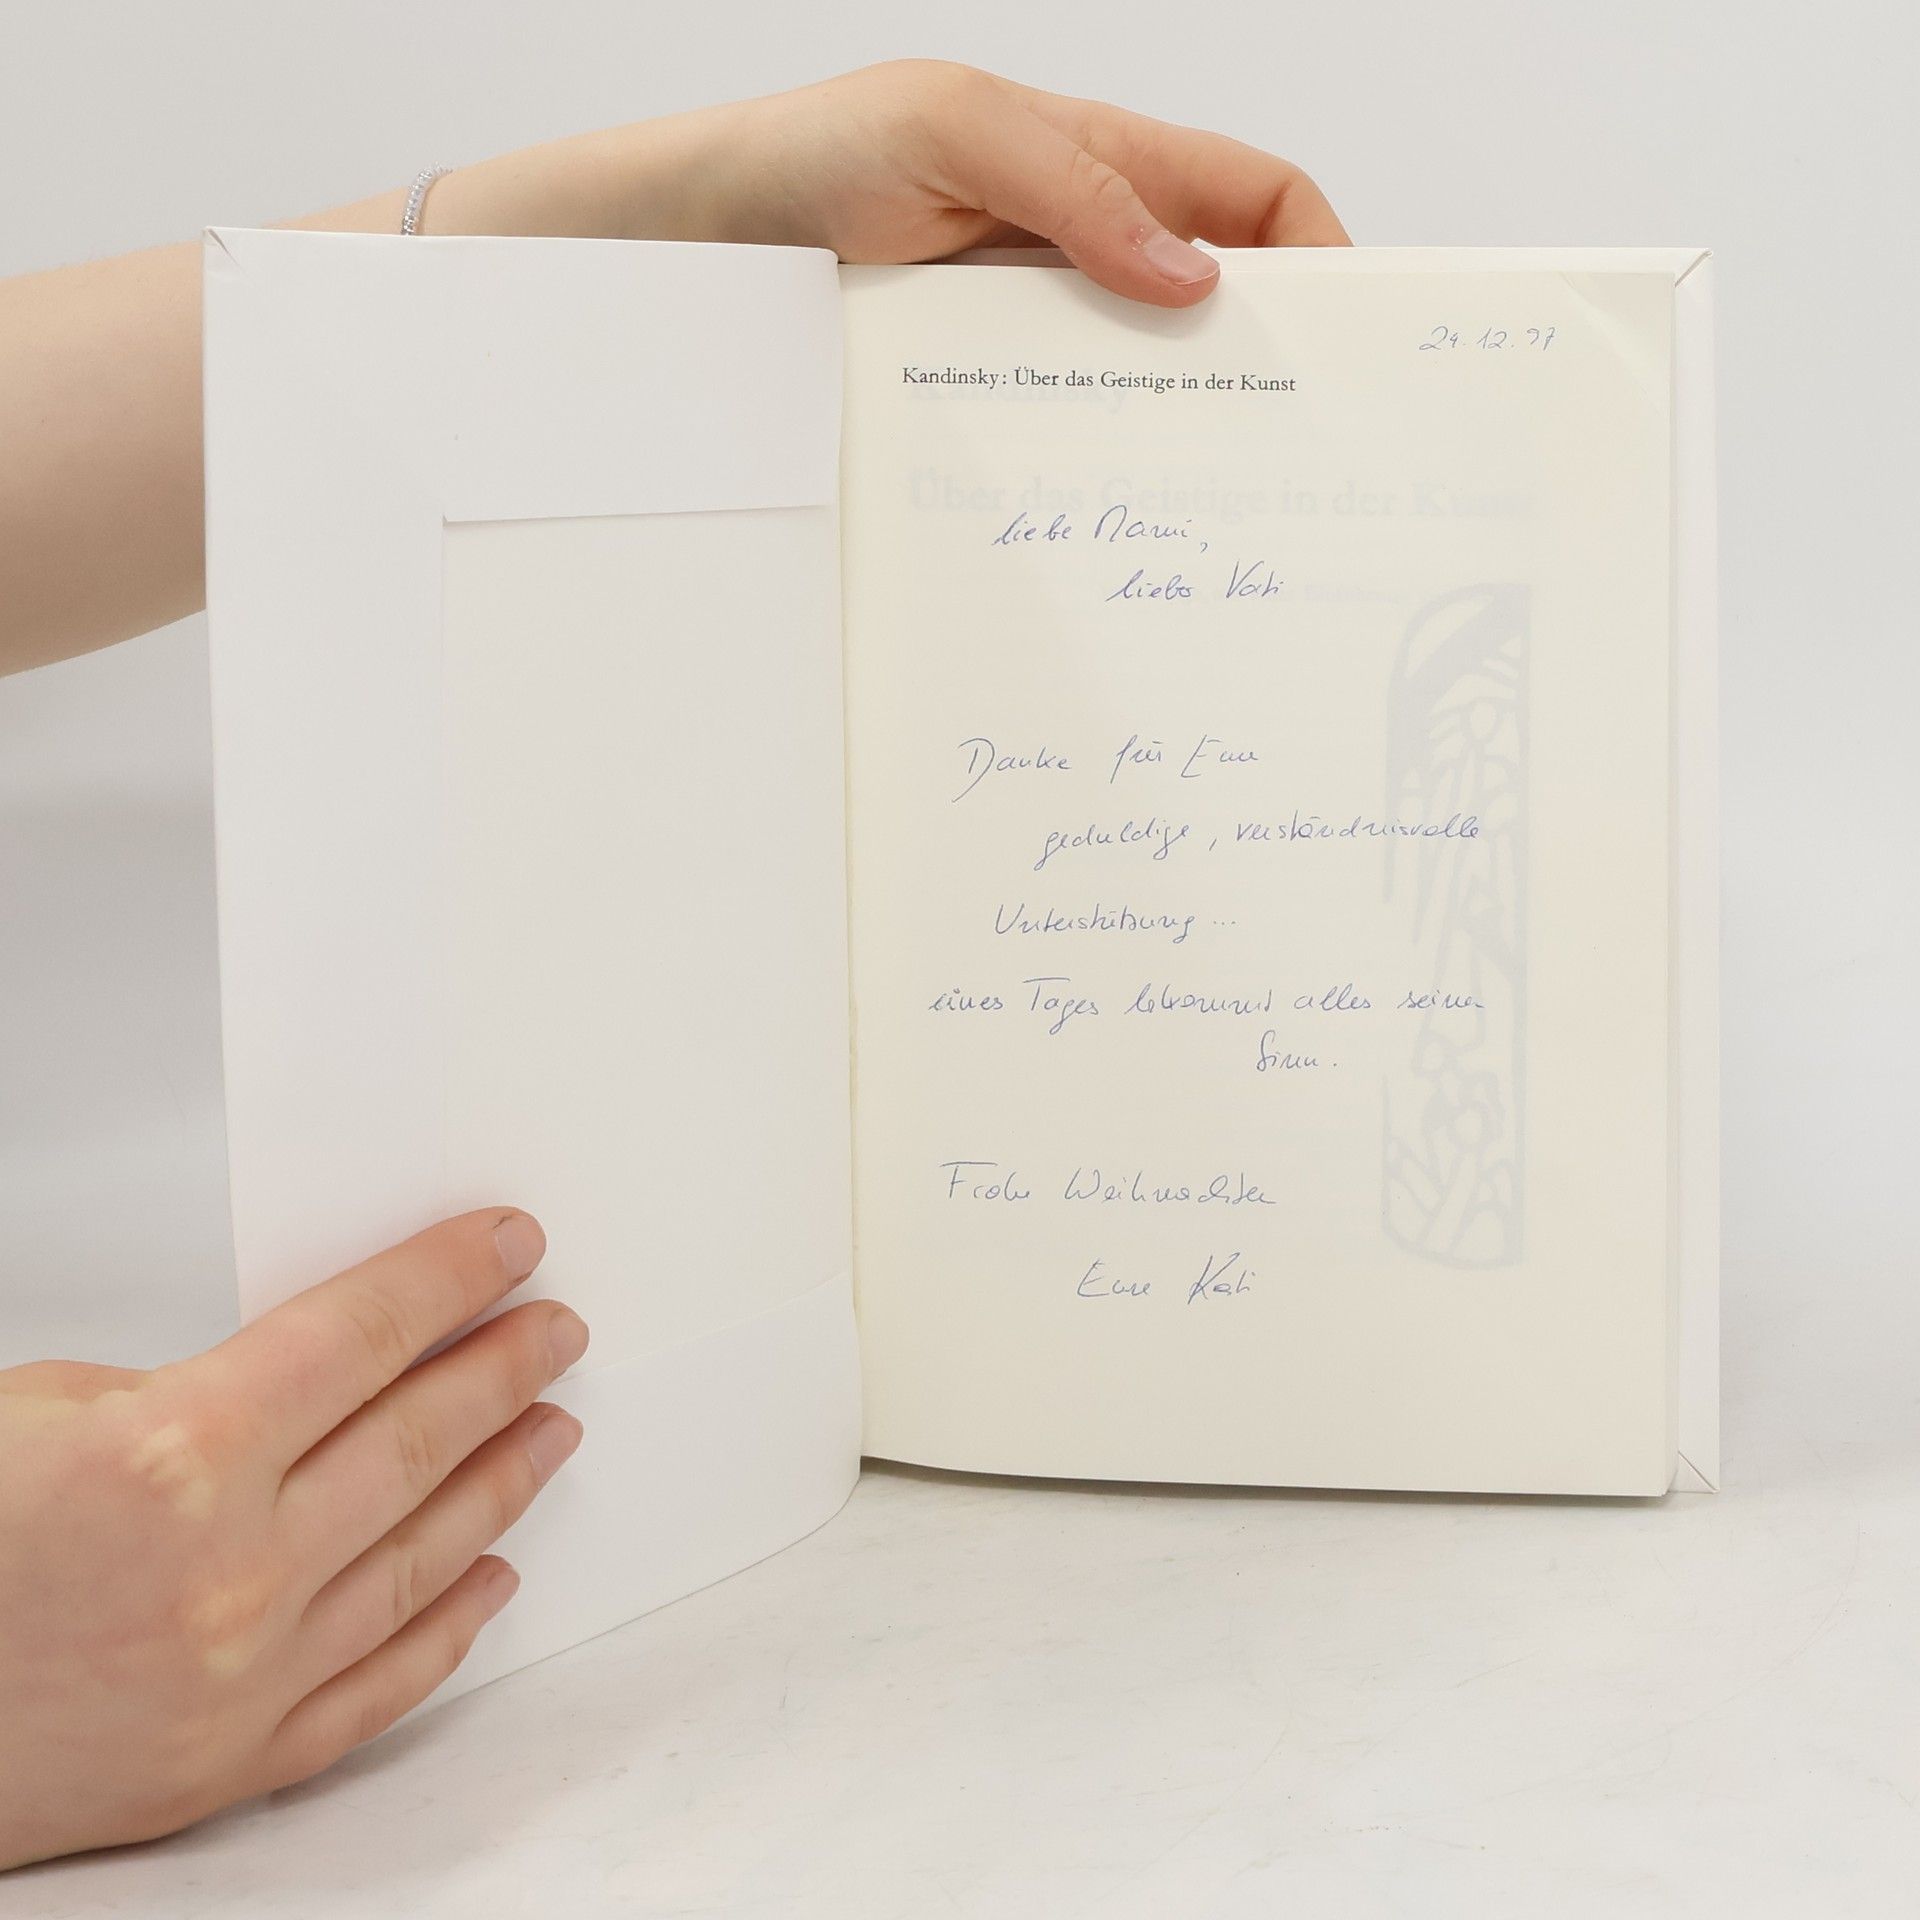 24.12.97
Kandinsky: Über das Geistige in der Kunst
Kandinsky
Über das Geistige in der Kunst
liebe Mami,
lieber Vati
Danke für Eure
geduldige, verständnisvolle
Unterstützung ...
eines Tages bekommt alles seinen
Sinn.
Frohe Weihnachten
Eure Kati